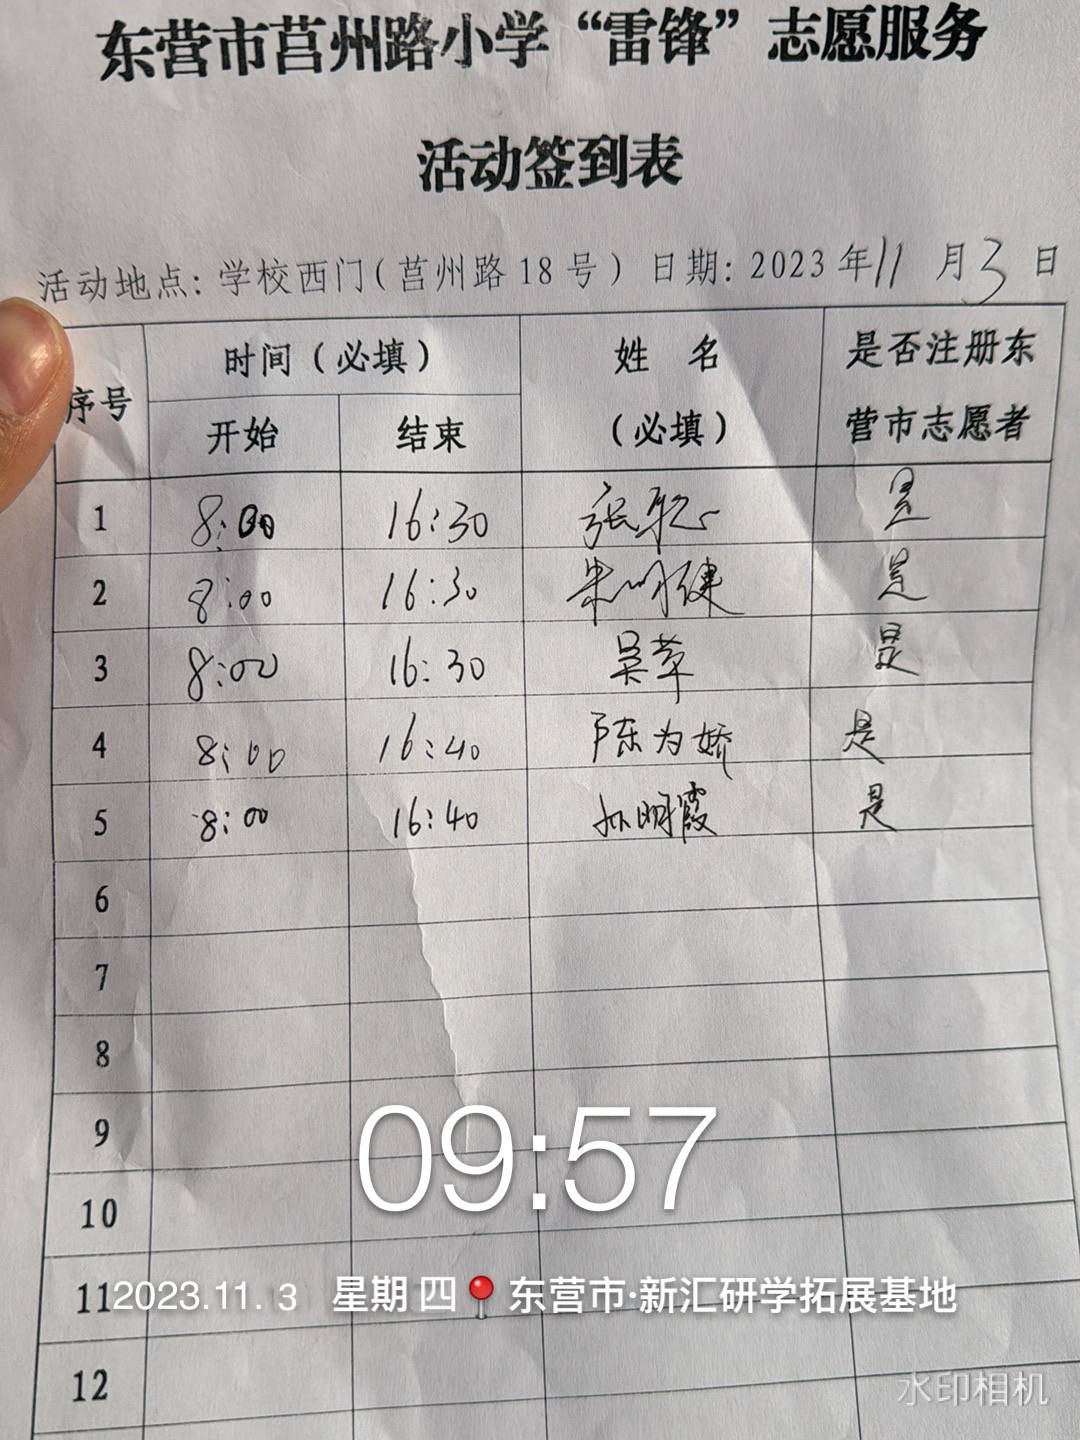 东营市莒州路小学“雷锋”志愿服务
活动签到表
活动地点：学校西门（莒州路18号）日期：2023年11月3日
序号 时间（必填） 姓 名（必填） 是否注册东营市志愿者
开始 结束
1 8:00 16:30 张 是
2 8:00 16:30 朱明健 是
3 8:00 16:30 吴苹 是
4 8:00 16:40 陈为娇 是
5 8:00 16:40 孙明霞 是
6
7
8
9
09:57
10
11
2023.11.3 星期四 东营市·新汇研学拓展基地
12
水印相机